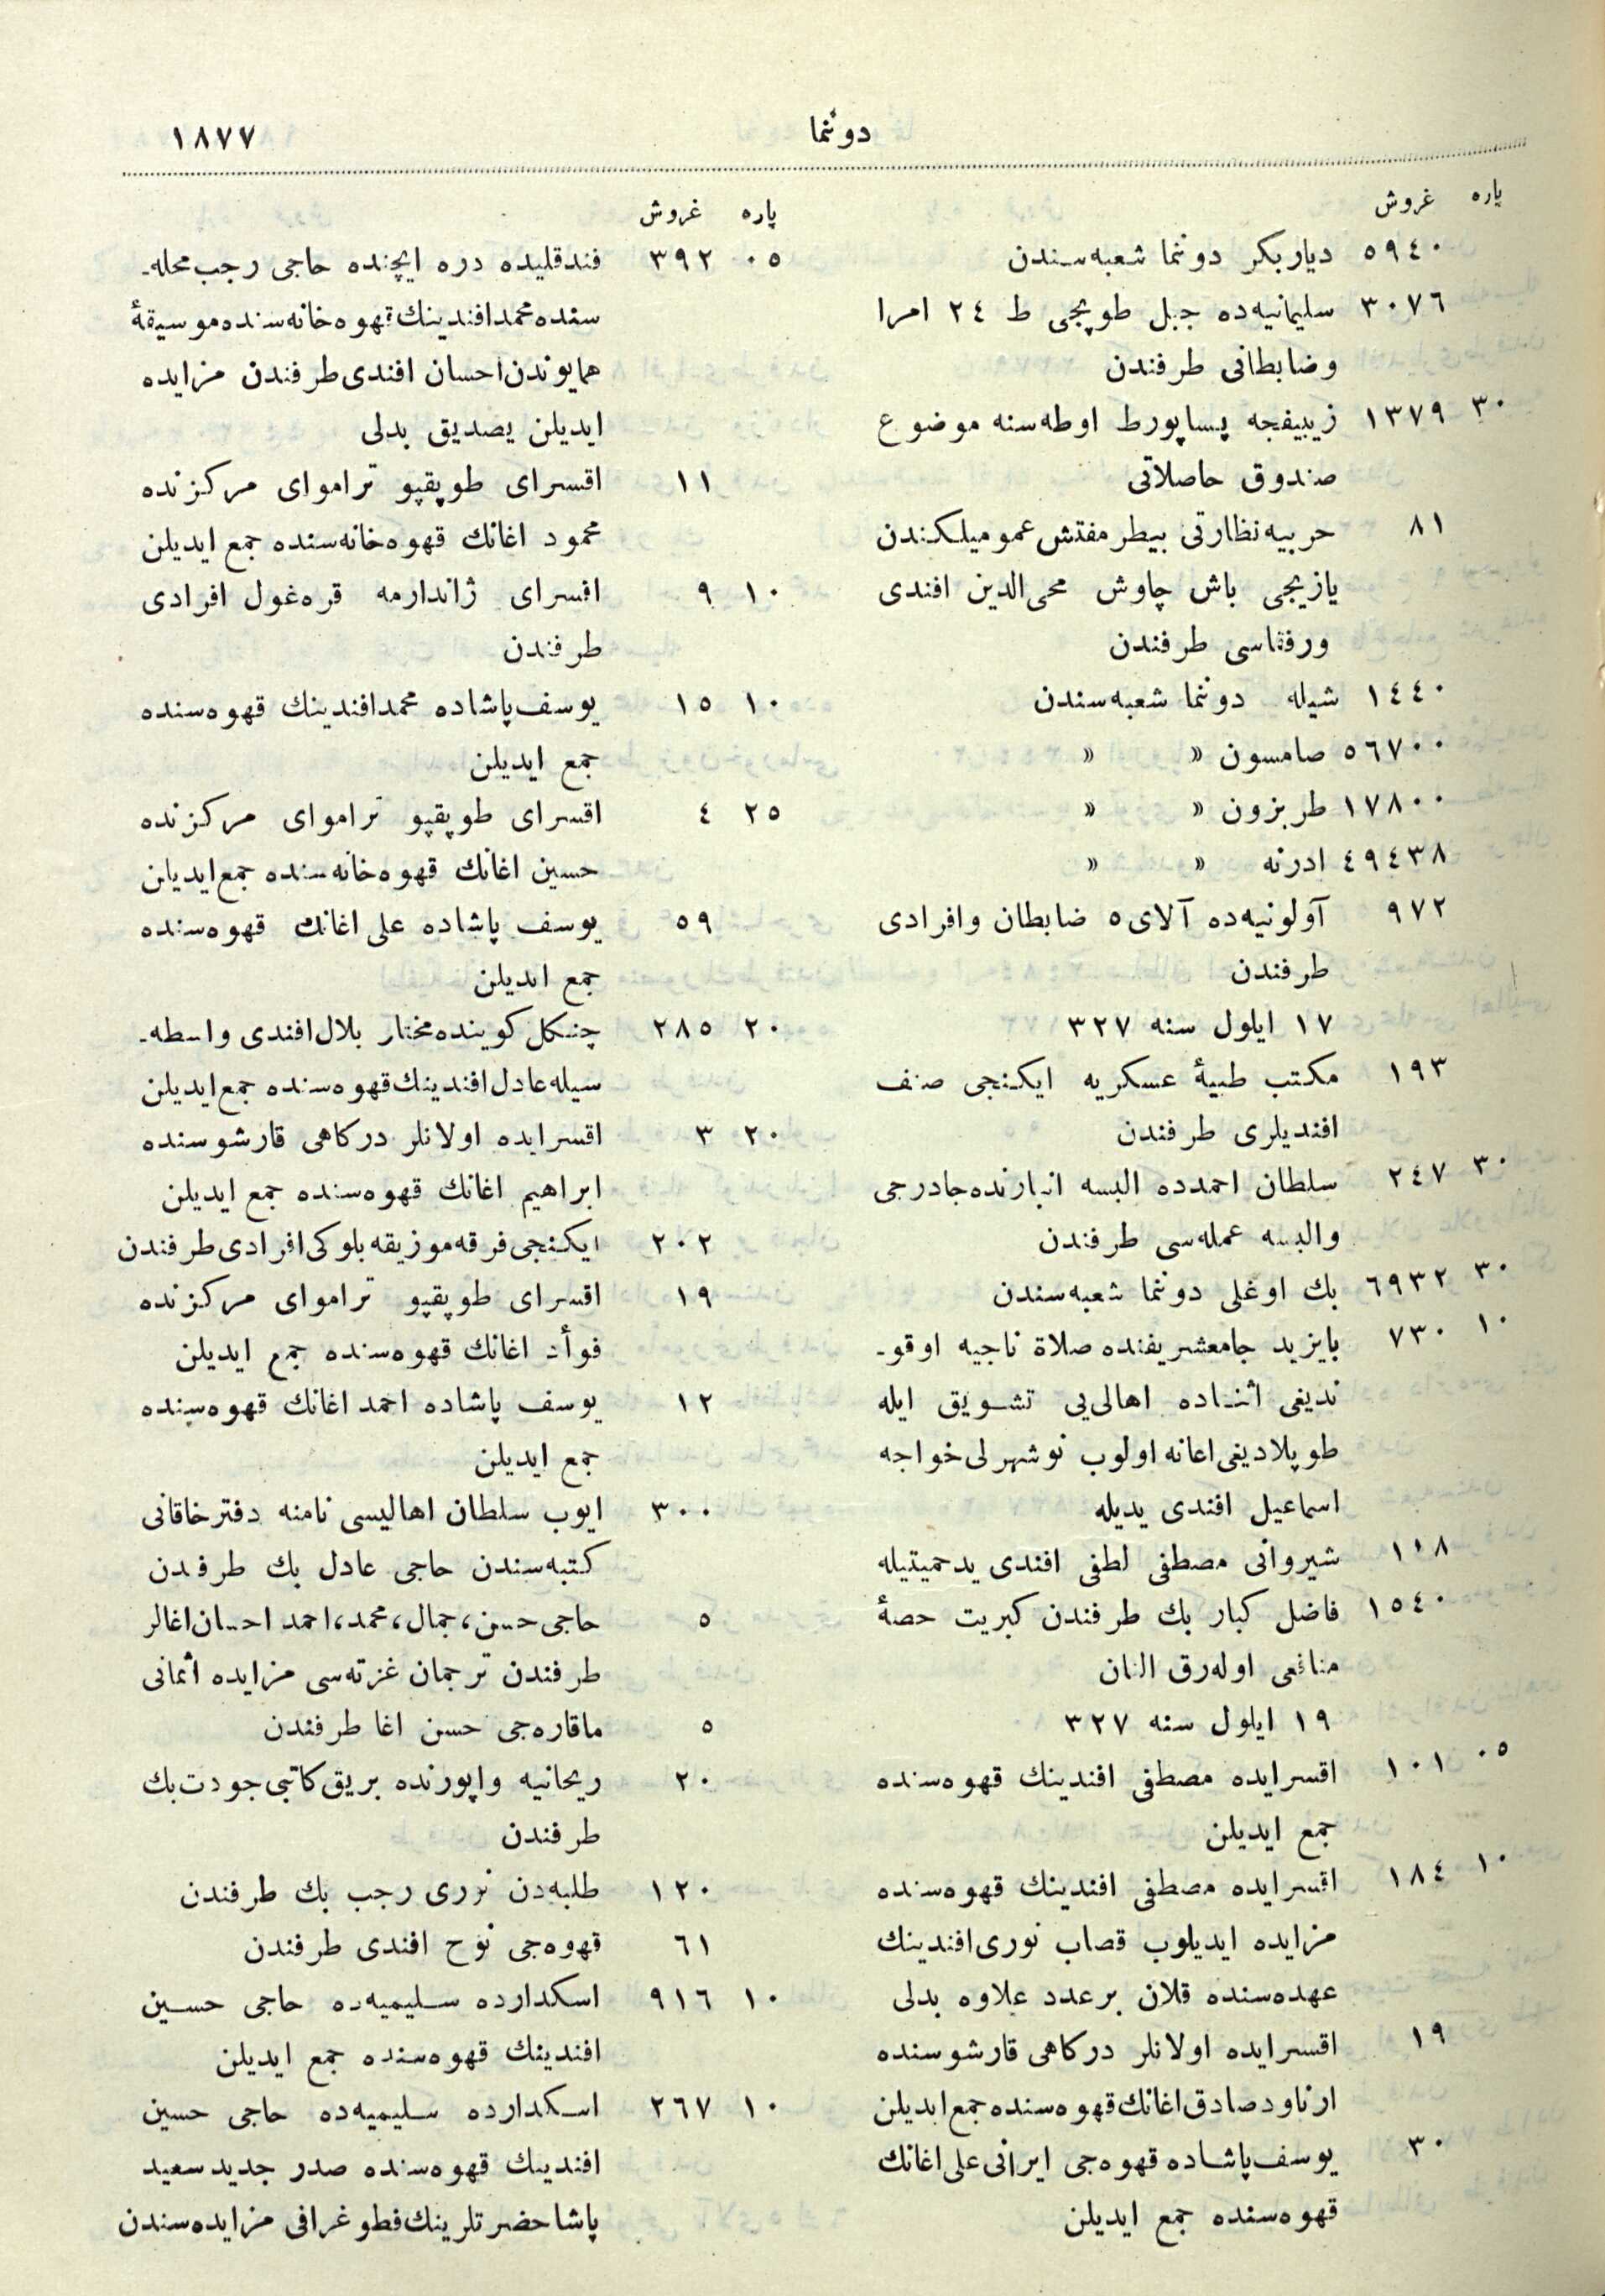 دوننما
١٨٧٧
پاره غروش
٥٩٤٠ دیاربكر دوننما شعبه‌سندن
٣٠٧٦ سلیمانیه‌ده جبل طوپجی ط ٢٤ امرا
وضابطانی طرفندن
٣٠ ١٣٧٩ زیبیفجه پساپورط اوطه‌سنه موضوع
صندوق حاصلاتی
٨١ حربیه نظارتی بیطر مفتش عمومیلكندن
یازیجی باش چاوش محی‌الدین افندی
ورفقاسی طرفندن
١٤٤٠ شیله دوننما شعبه‌سندن
٥٦٧٠٠ صامسون » »
١٧٨٠٠ طربزون » »
٤٩٤٣٨ ادرنه » »
٩٧٢ آولونیه‌ده آلای ٥ ضابطان وافرادی
طرفندن
١٧ ایلول سنه ٣٢٧
١٩٣ مكتب طبیهٔ عسكریه ایكنجی صنف
افندیلری طرفندن
٣٠ ٢٤٧ سلطان احمدده البسه انبارنده جادرجی
والبسه عمله‌سی طرفندن
٣٠ ٦٩٣٢ بك اوغلی دوننما شعبه‌سندن
١٠ ٧٣٠ بایزید جامعشریفنده صلاة ناجیه اوقو-
ندیغی اثناده اهالی‌یی تشویق ایله
طوپلادیغی اعانه اولوب نوشهرلی خواجه
اسماعیل افندی یدیله
١٠٨ شیروانی مصطفی لطفی افندی یدحمیتیله
١٥٤٠ فاضل كبار بك طرفندن كبریت حصهٔ
منافعی اوله‌رق النان
١٩ ایلول سنه ٣٢٧
٠٥ ١٠١ اقسرایده مصطفی افندینك قهوه‌سنده
جمع ایدیلن
١٠ ١٨٤ اقسرایده مصطفی افندینك قهوه‌سنده
مزایده ایدیلوب قصاب نوری افندینك
عهده‌سنده قلان بر عدد علاوه بدلی
١٩ اقسرایده اولانلر دركاهی قارشوسنده
ارناود صادق اغانك قهوه‌سنده جمع ایدیلن
٣٠ یوسف پاشاده قهوه‌جی ایرانی علی اغانك
قهوه‌سنده جمع ایدیلن
پاره غروش
٠٥ ٣٩٢ فندقلیده دره ایچنده حاجی رجب محله-
سنده محمد افندینك قهوه‌خانه‌سنده موسیقهٔ
همایوندن احسان افندی طرفندن مزایده
ایدیلن یصدیق بدلی
١١ اقسرای طوپقپو تراموای مركزنده
محمود اغانك قهوه‌خانه‌سنده جمع ایدیلن
١٠ ٩ اقسرای ژاندارمه قره‌غول افرادی
طرفندن
١٠ ١٥ یوسف پاشاده محمد افندینك قهوه‌سنده
جمع ایدیلن
٢٥ ٤ اقسرای طوپقپو تراموای مركزنده
حسین اغانك قهوه‌خانه‌سنده جمع ایدیلن
٥٩ یوسف پاشاده علی اغانك قهوه‌سنده
جمع ایدیلن
٢٠ ٢٨٥ چنكل كوینده مختار بلال افندی واسطه-
سیله عادل افندینك قهوه‌سنده جمع ایدیلن
٢٠ ٣ اقسرایده اولانلر دركاهی قارشوسنده
ابراهیم اغانك قهوه‌سنده جمع ایدیلن
٢٠٢ ایكنجی فرقه موزیقه بلوكی افرادی طرفندن
١٩ اقسرای طوپقپو تراموای مركزنده
فوأد اغانك قهوه‌سنده جمع ایدیلن
١٢ یوسف پاشاده احمد اغانك قهوه‌سنده
جمع ایدیلن
٣٠٠ ایوب سلطان اهالیسی نامنه دفترخاقانی
كتبه‌سندن حاجی عادل بك طرفدن
٥ حاجی حسن، جمال، محمد، احمد احسان اغالر
طرفندن ترجمان غزته‌سی مزایده اثمانی
٥ ماقاره‌جی حسن اغا طرفندن
٢٠ ریحانیه واپورنده بریق كاتبی جودت بك
طرفندن
١٢٠ طلبه‌دن نوری رجب بك طرفندن
٦١ قهوه‌جی نوح افندی طرفندن
١٠ ٩١٦ اسكدارده سلیمیه‌ده حاجی حسین
افندینك قهوه‌سنده جمع ایدیلن
١٠ ٢٦٧ اسكدارده سلیمیه‌ده حاجی حسین
افندینك قهوه‌سنده صدر جدید سعید
پاشا حضرتلرینك فطوغرافی مزایده‌سندن